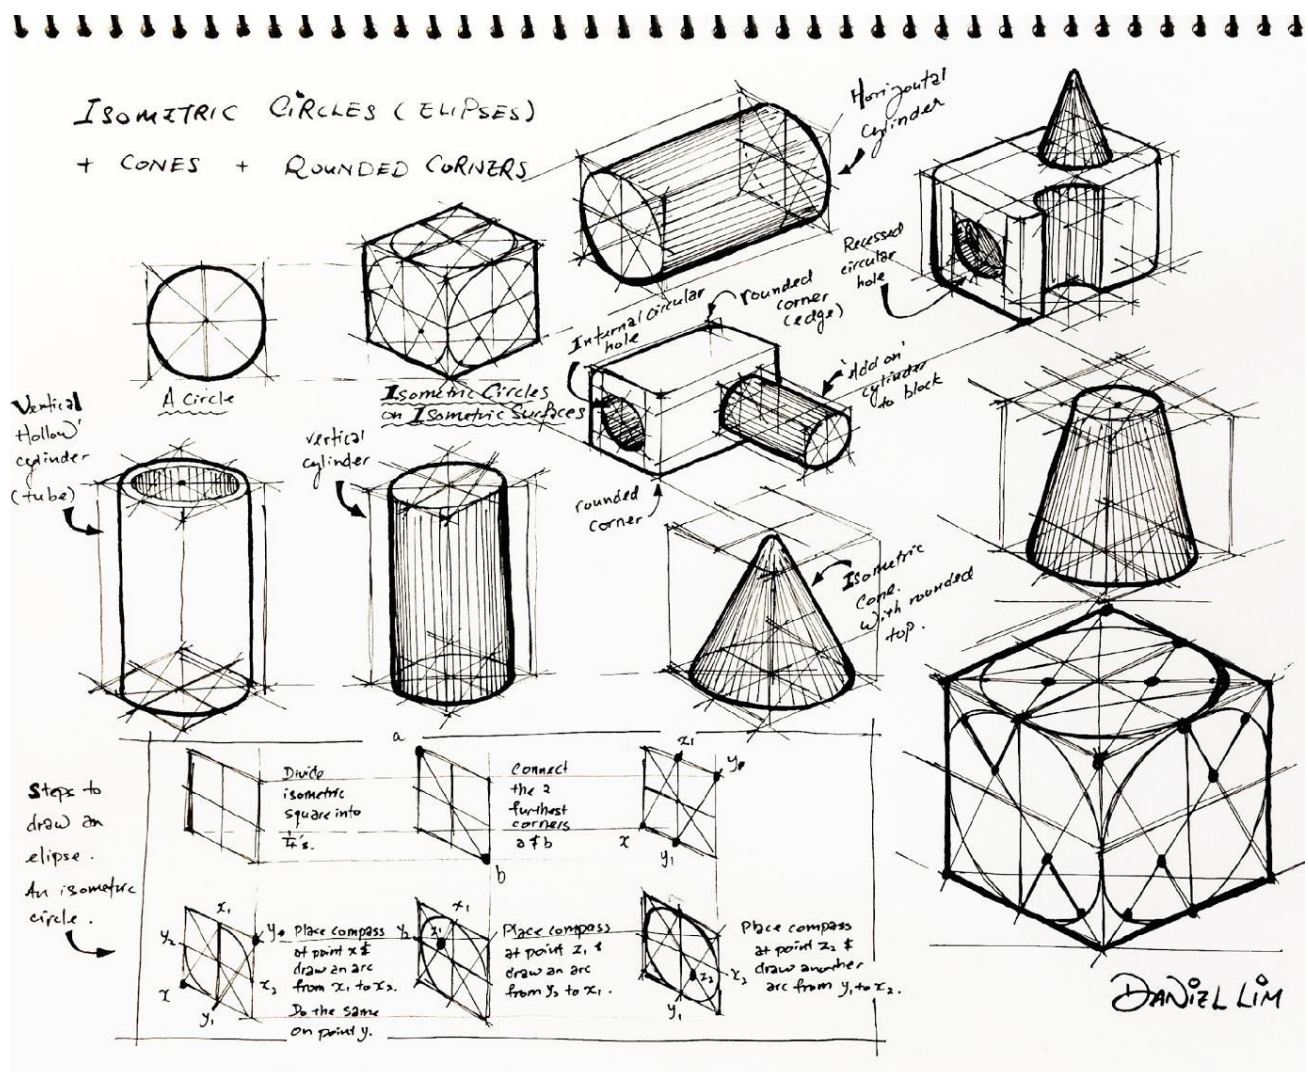 ISOMETRIC CIRCLES (ELIPSES)
+ CONES + ROUNDED CORNERS
Horizontal
cylinder
A circle
Isometric Circles
on Isometric Surfaces
Internal circular
hole
rounded
corner
(edge)
Recessed
circular
hole
'Add on'
cylinder
to block
rounded
corner
Vertical
'Hollow'
cylinder
(tube)
vertical
cylinder
Isometric
Cone.
with rounded
top.
Steps to
draw an
elipse.
An isometric
circle.
Divide
isometric
square into
1/4's.
a
b
Connect
the 2
furthest
corners
a & b
x1
y
x
y1
x1
y2
y
x
x2
y1
Place compass
at point x &
draw an arc
from x1 to x2.
Do the same
on point y.
x1
y2
z1
Place compass
at point z1 &
draw an arc
from y2 to x1.
z2
x2
y1
Place compass
at point z2 &
draw another
arc from y1 to x2.
DANIEL LIM